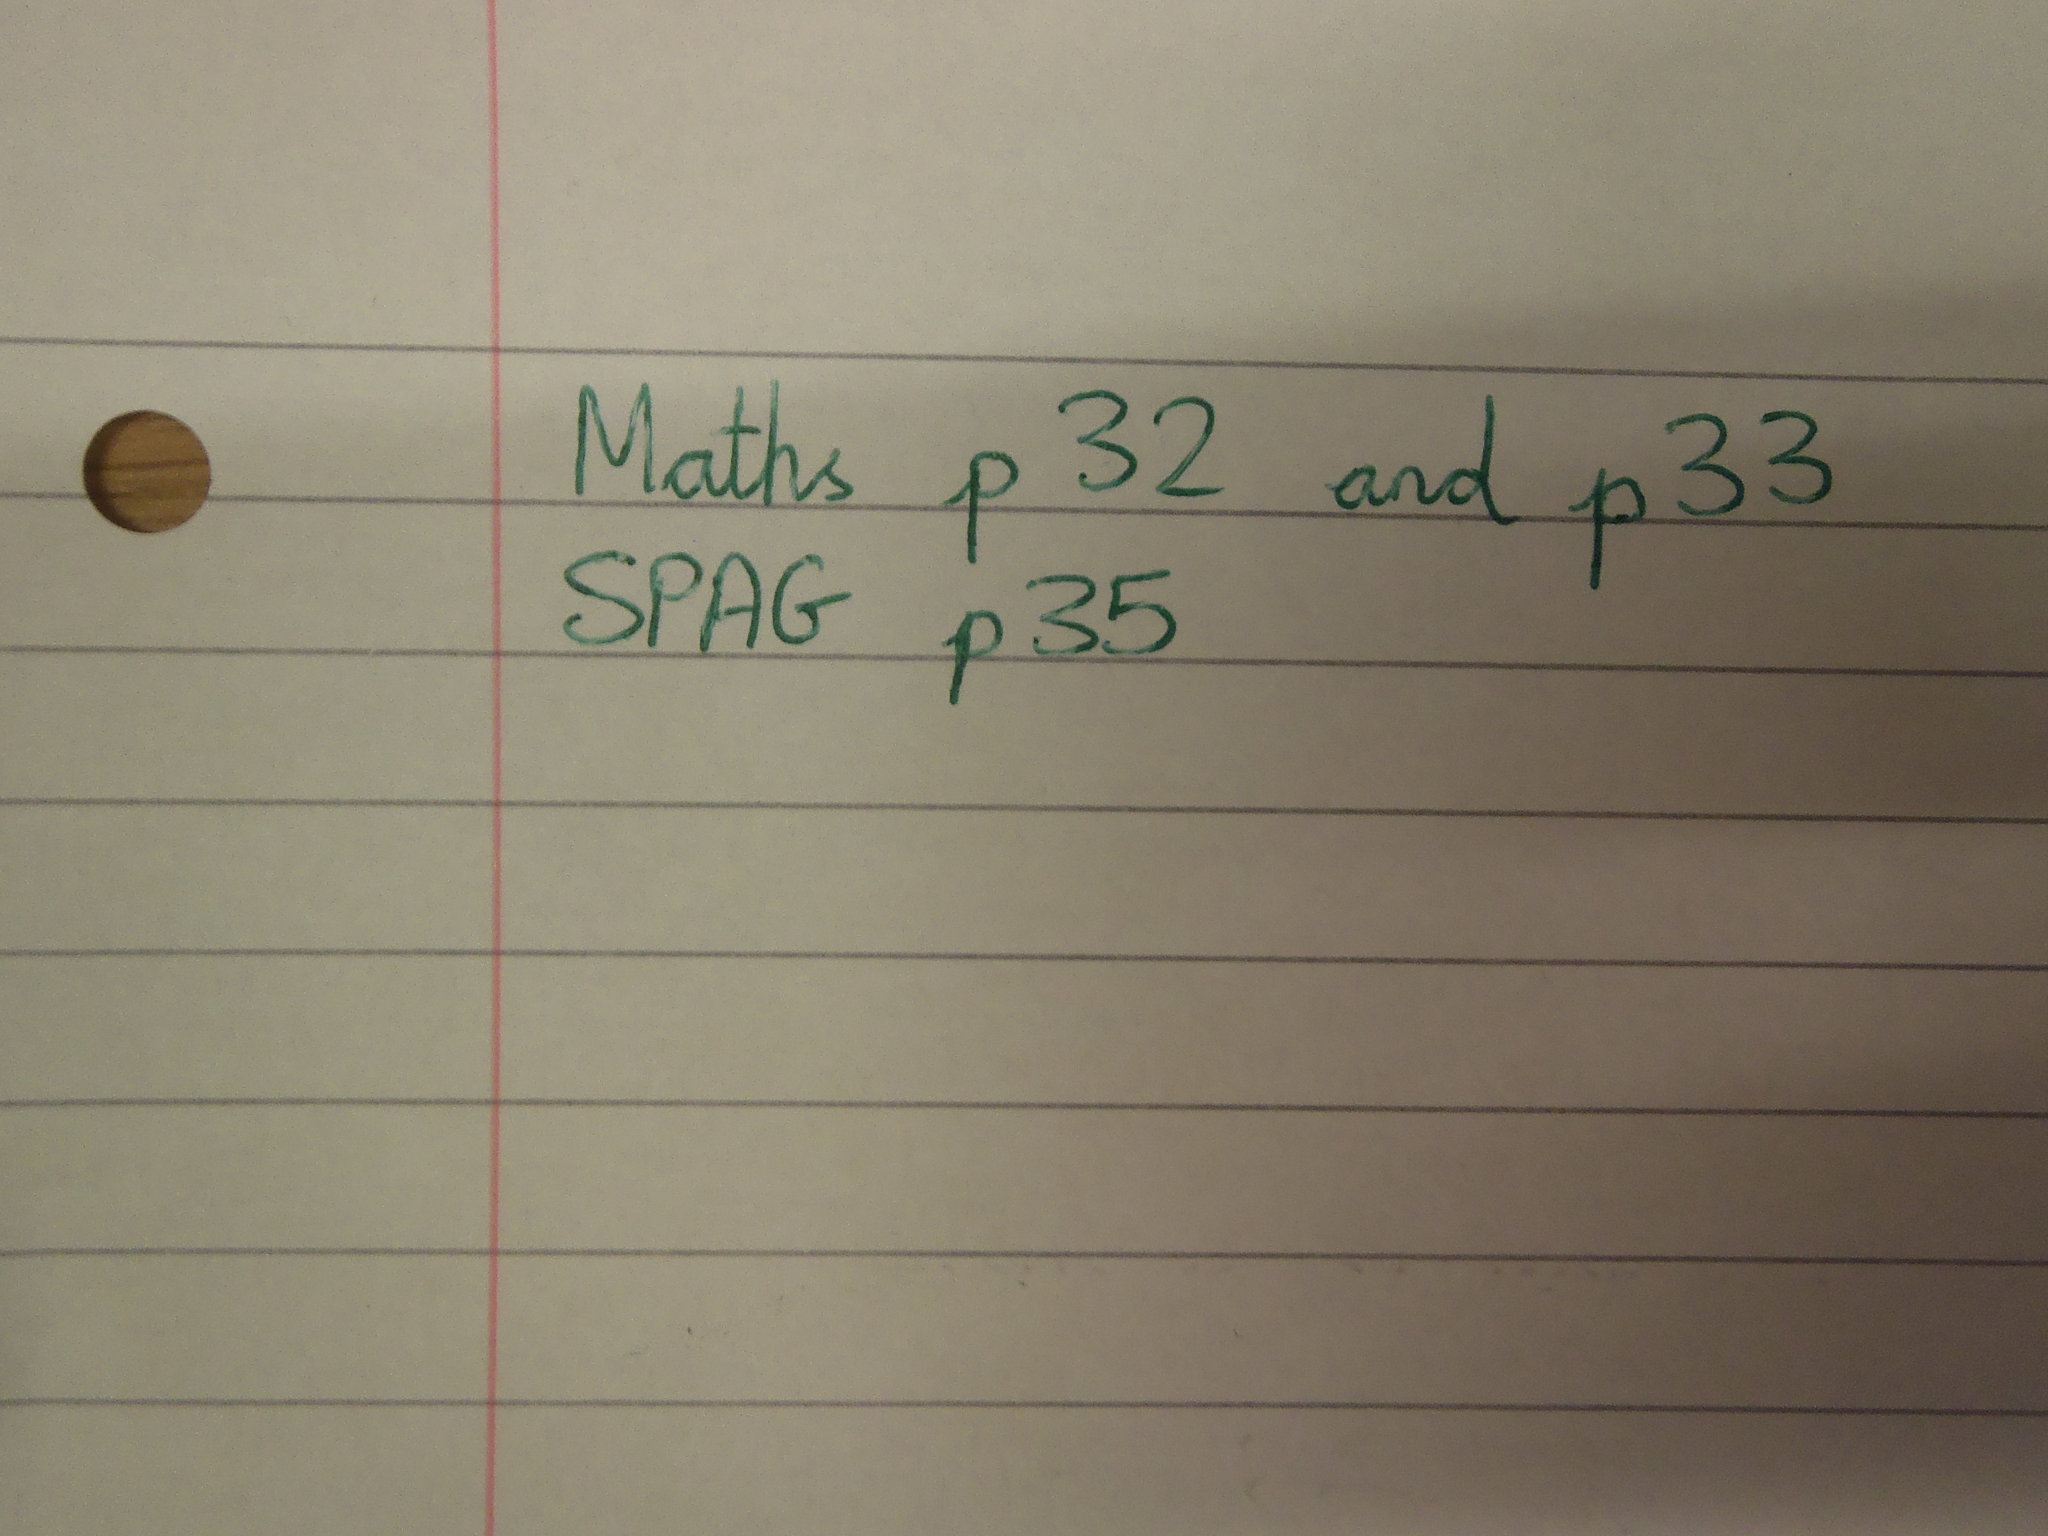 Maths p 32 and p33
SPAG p35